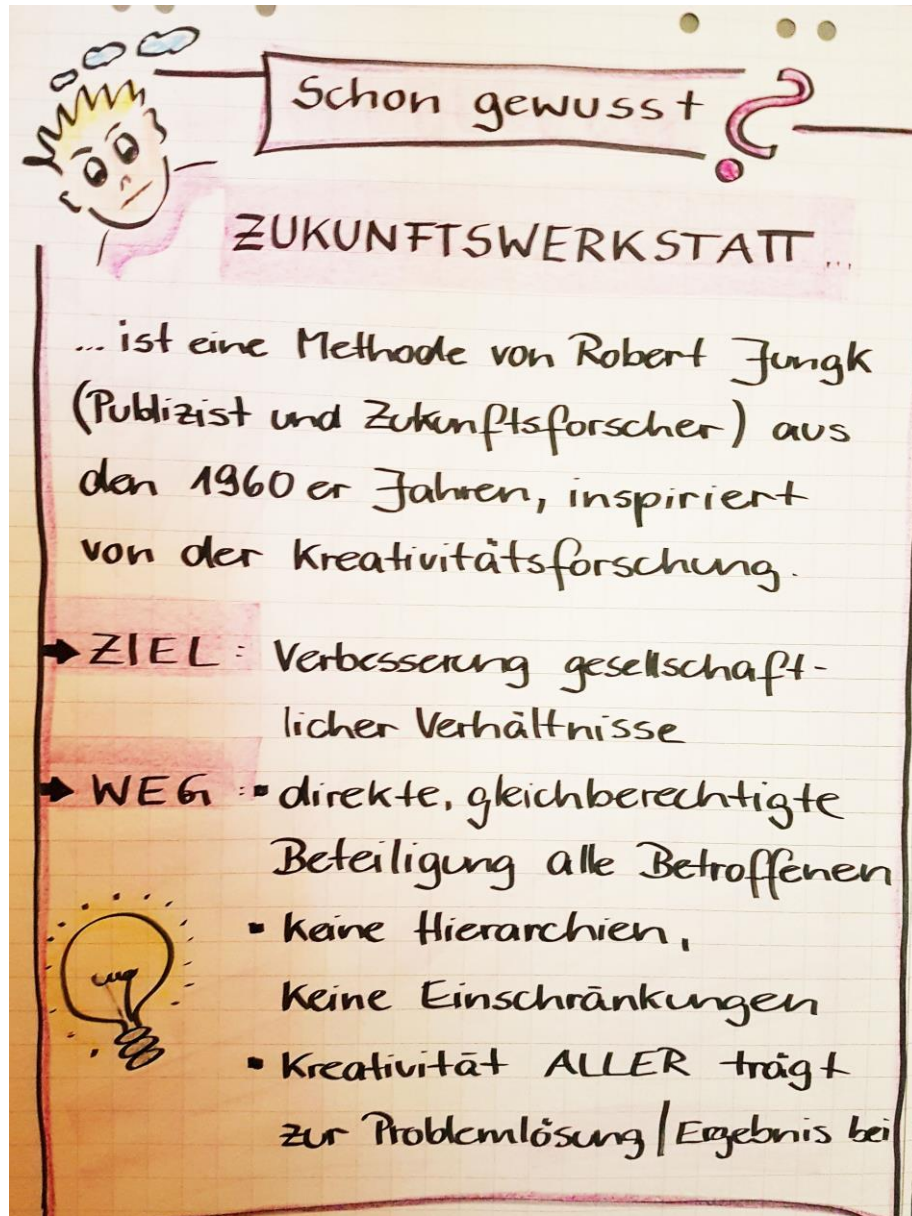 Schon gewusst ?
ZUKUNFTSWERKSTATT ...
... ist eine Methode von Robert Jungk
(Publizist und Zukunftsforscher) aus
den 1960er Jahren, inspiriert
von der Kreativitätsforschung.
→ ZIEL: Verbesserung gesellschaft-
licher Verhältnisse
→ WEG: ▪ direkte, gleichberechtigte
Beteiligung alle Betroffenen
▪ Keine Hierarchien,
Keine Einschränkungen
▪ Kreativität ALLER trägt
zur Problemlösung / Ergebnis bei